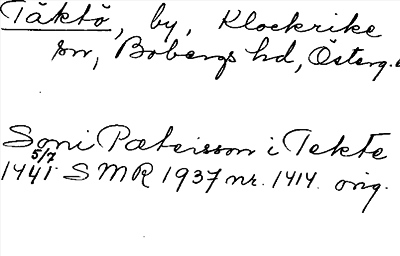 Täktö, by, Klockrike
sn, Bobergs hd, Österg.
Soni Pætersson i Tekte
5/7
1441 SMR 1937 nr. 1414. orig.